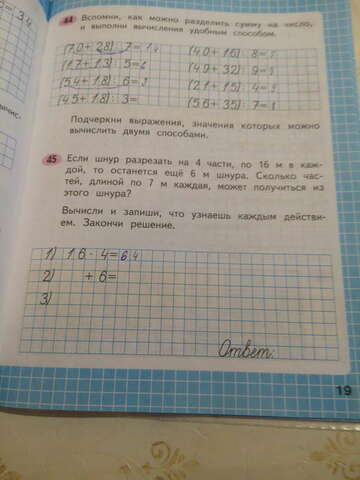 44 Вспомни, как можно разделить сумму на число,
и выполни вычисления удобным способом.
(70+28) : 7=14
(40+16) : 8=
(17+13) : 5=
(49+32) : 9=
(54+18) : 6=
(21+15) : 4=
(45+18) : 3=
(56+35) : 7=
Подчеркни выражения, значения которых можно
вычислить двумя способами.
45 Если шнур разрезать на 4 части, по 16 м в каж-
дой, то останется ещё 6 м шнура. Сколько час-
тей, длиной по 7 м каждая, может получиться из
этого шнура?
Вычисли и запиши, что узнаешь каждым действи-
ем. Закончи решение.
1) 16 · 4=64
2) + 6=
3)
Ответ:
19